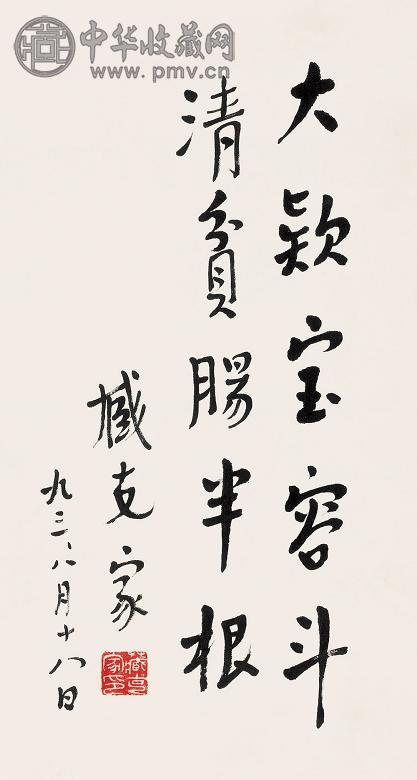 中华收藏网
www.pmv.cn
大欵宝容斗
清貧腸半根
臧克家
九三八月十八日